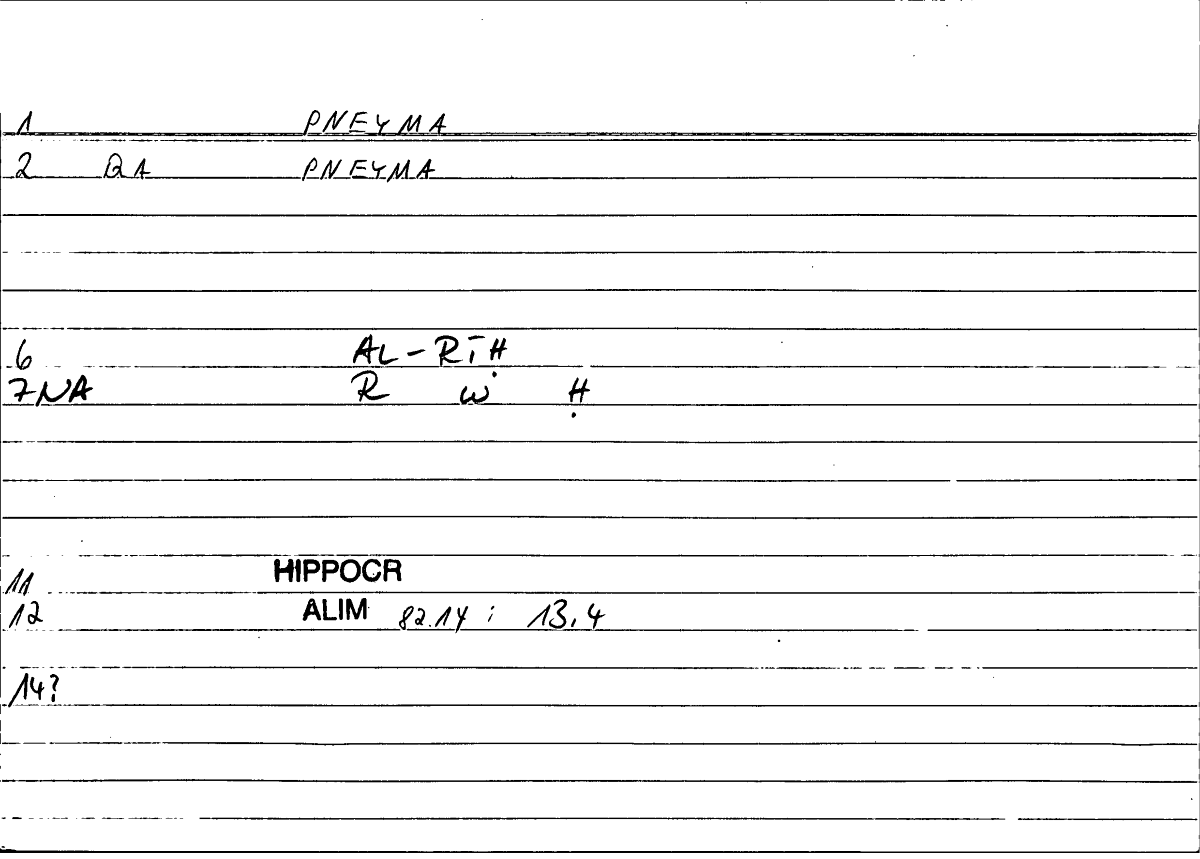 1 PNEYMA
2 QA PNEYMA
6 AL-RĪḤ
7NA R W Ḥ
11 HIPPOCR
12 ALIM 82.14 ; 13,4
14?